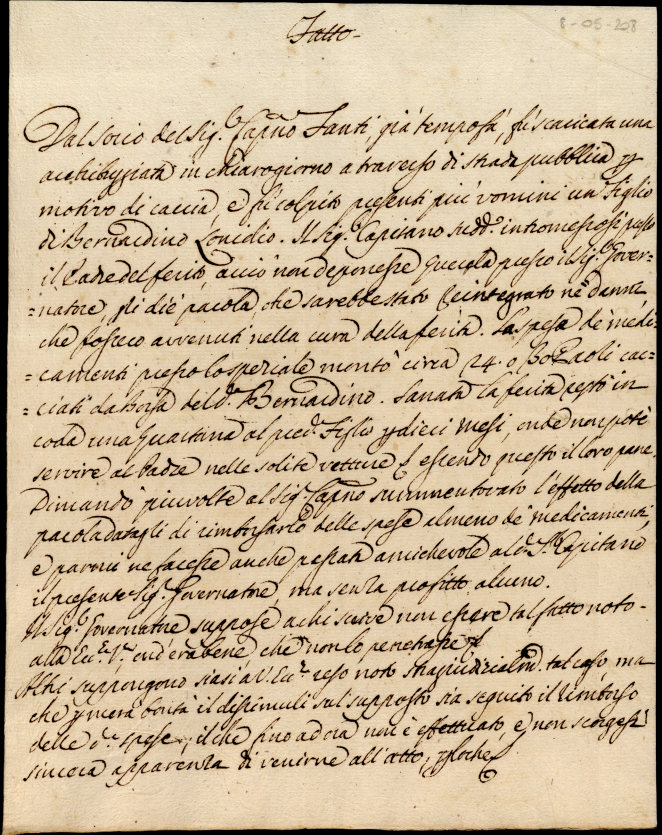 8-05-208
Fatto
Dal Socio del Sig.r Cap.no Santi, già temposà, fù scaricata una
archibugiata in chiarogiorno a traverso di strada pubblica p
motivo di caccia, e fù colpito presenti più uomini un Figlio
di Bernardino. Il Sig.r Capitano sudd.o intromessosi presso
il Padre del ferito, acciò non deponesse querela presso il Sig.r Gover=
=natore, gli diè parola, che sarebbe stato reintegrato ne' danni,
che fossero avvenuti nella cura della ferita. La spesa de' medi=
=camenti presso lo speziale montò circa 24. o 30 Paoli cac=
=ciati da Borsa del d.o Bernardino. Sanata la ferita restò in
coda una Quartana al pred.o Figlio p dieci Mesi, onde non potè
servire al Padre nelle solite vetture essendo questo il loro pane.
Dimandò più volte al Sig.r Cap.no summentovato l'effetto della
parola datagli di rimborsarlo delle spese almeno de' medicamenti,
e parmi ne facesse anche passata amichevole al d.o S.r Capitano
il presente Sig.r Governatore, ma senza profitto alcuno.
Il Sig.r Governatore suppose a chi scrive non essere tal fatto noto
alla Ecc.a V.a, ond'era bene che non lo penetrasse
Altri suppongono siasi a V. Ecc.a reso noto tal caso, ma
che p mera bontà il dissimuli sul supposto sia seguito il rimborso
delle d.e spese, il che fino ad ora non è effettuato, e non scorgesi
sincera apparenza di venirne all'atto,